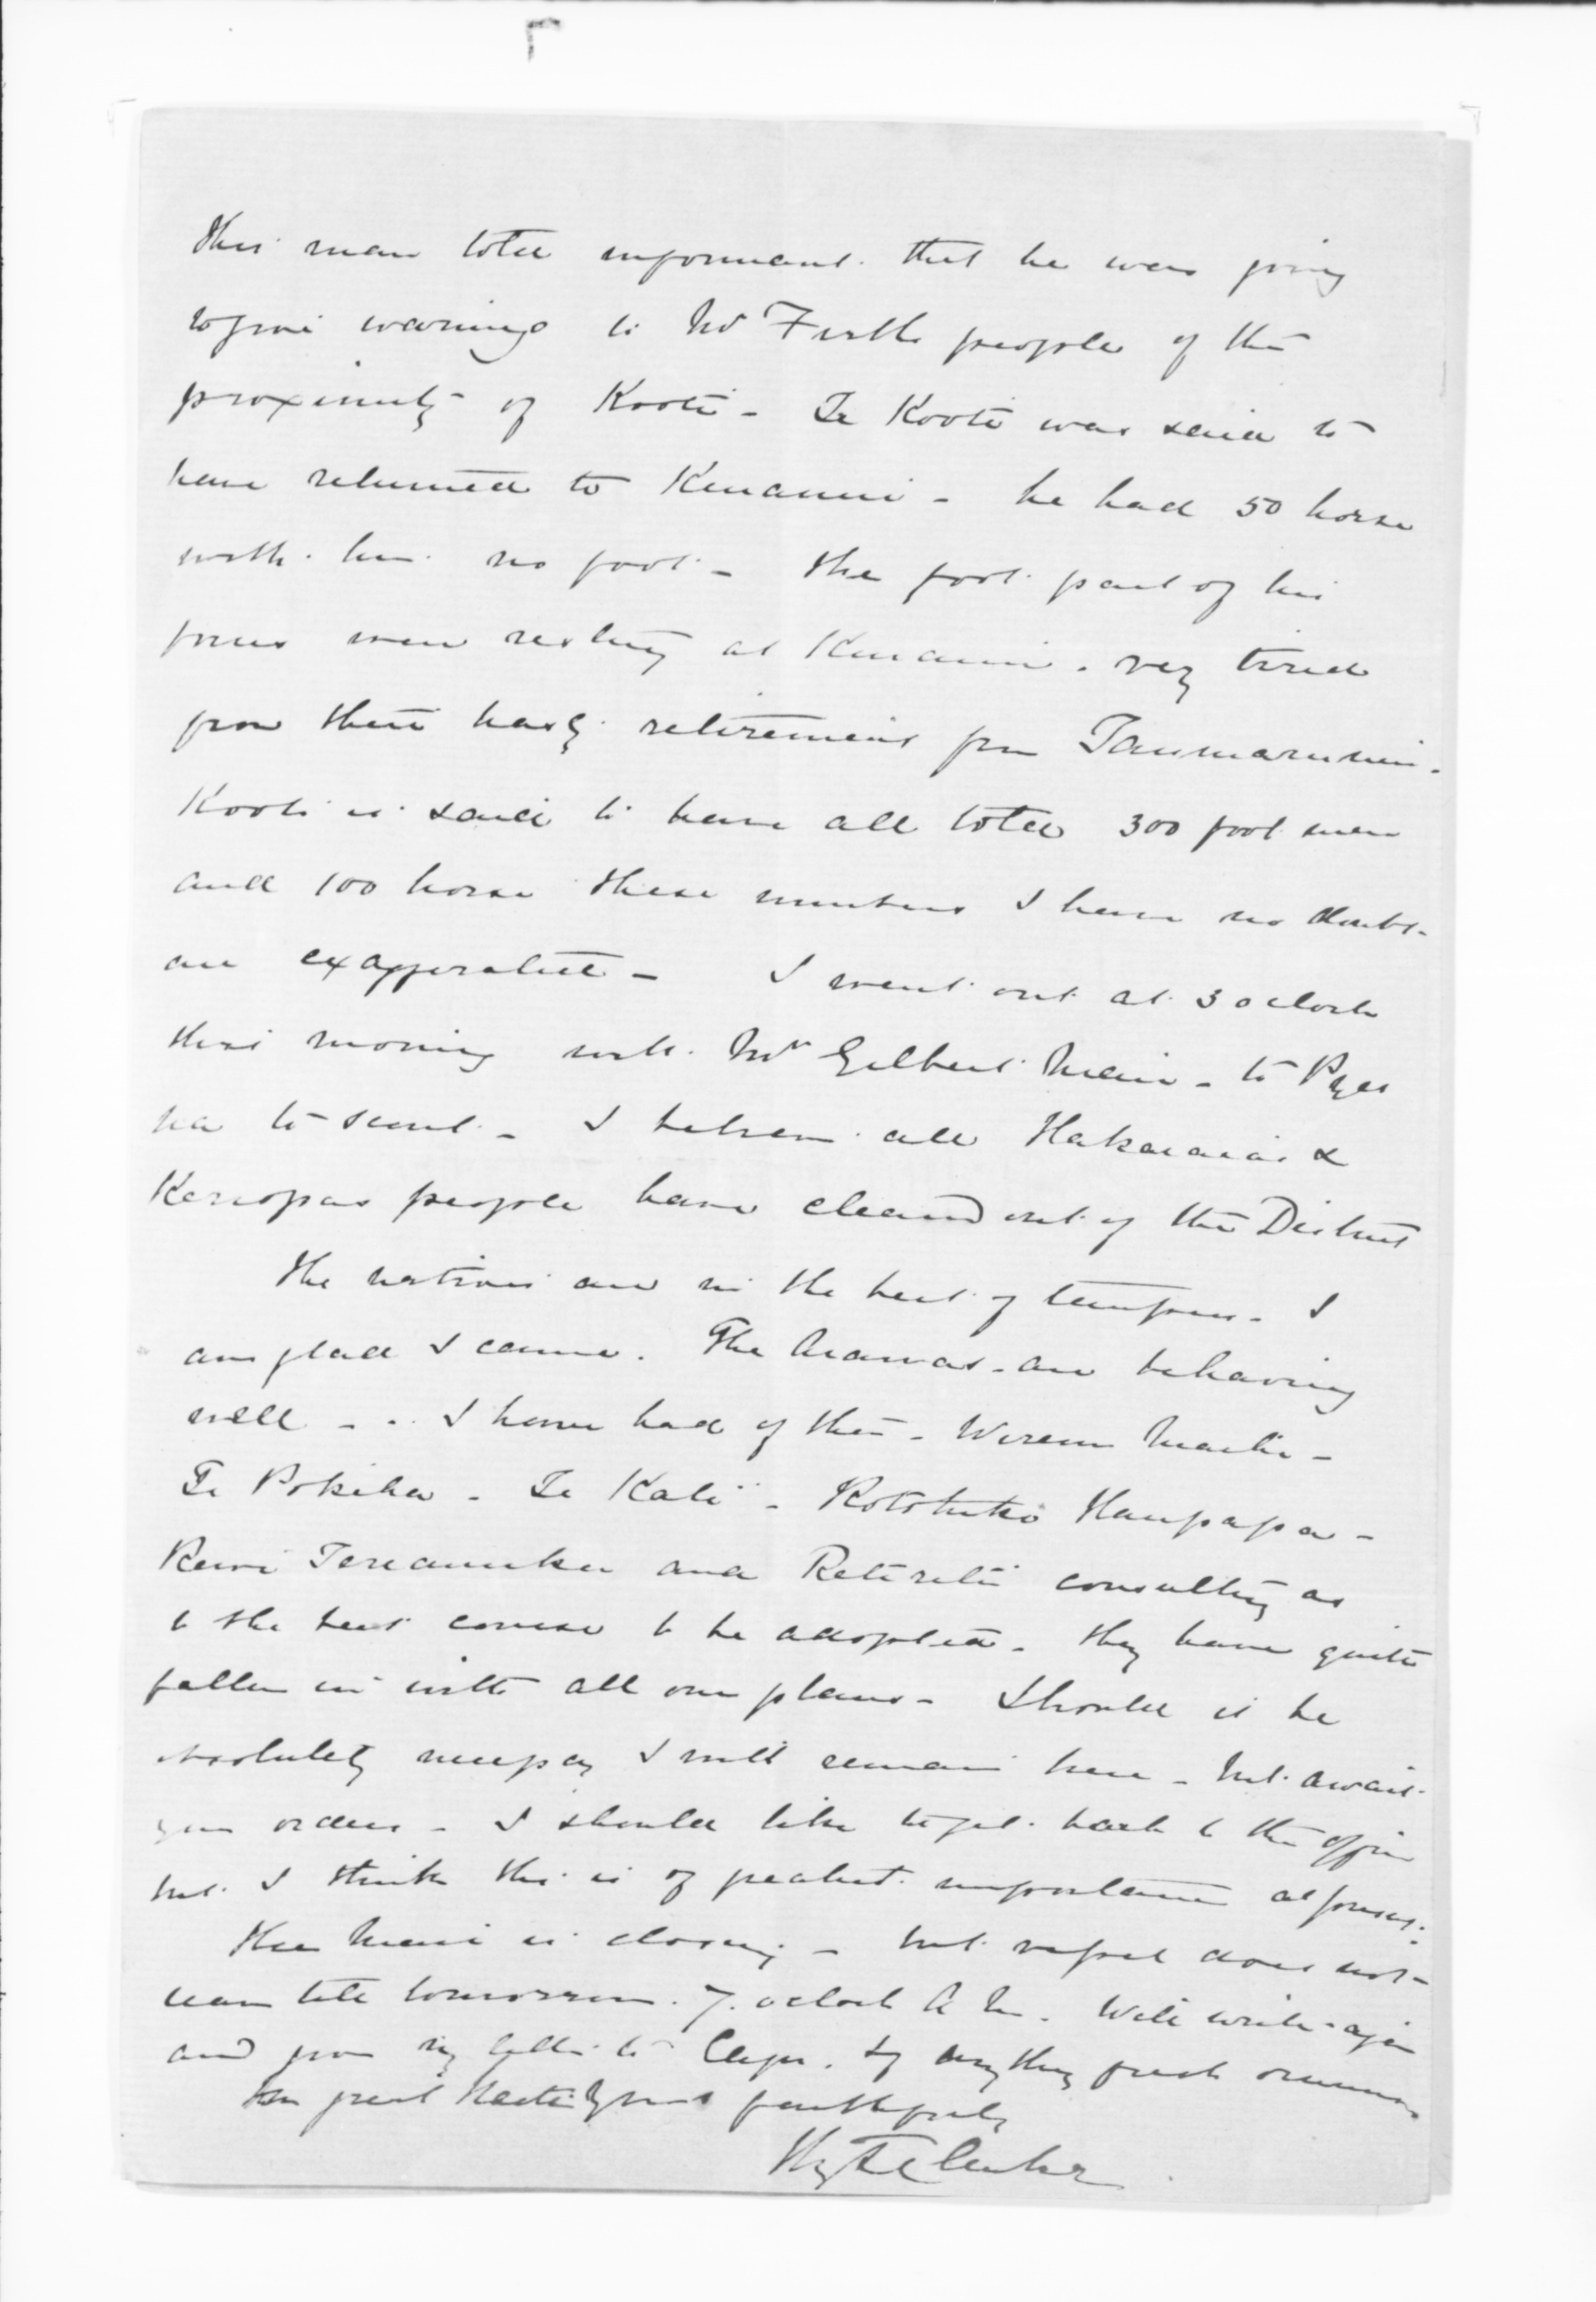 this man told informant that he was going
to give warning to Mr Firth people of the
proximity of Kooti - Te Kooti was said to
have returned to Kuranui - he had 50 horse
with him no foot - the foot part of his
force were resting at Kuranui - very tired
from their hasty retirement from Taumarunui.
Kooti is said to have all told 300 foot men
and 100 horse these numbers I have no doubt
are exaggerated - I went out at 3 oclock
this morning with Mr Gilbert Mair - to Pyes
Pa to scout - I believe all Hakaraias &
Kereopas people have cleared out of the District
The natives are in the best of tempers - I
am glad I came. The Arawas are behaving
well - I have had of them - Wiremu Maihi -
Te Pokiha - Te Kati - Rotohiko Haupapa -
Rewi Tereanuku and Retireti consulting as
to the best course to be adopted - they have quite
fallen in with all our plans - Should it be
absolutely necessary I will remain here - but await
your orders - I should like to get back to the office
but I think this is of greatest importance at present.
The Mail is closing - but vessel does not
leave till tomorrow 7. oclock A M. Will write again
and give my letter to Capn. if any thing fresh occurs
In great haste Yours faithfully
Hy T Clarke